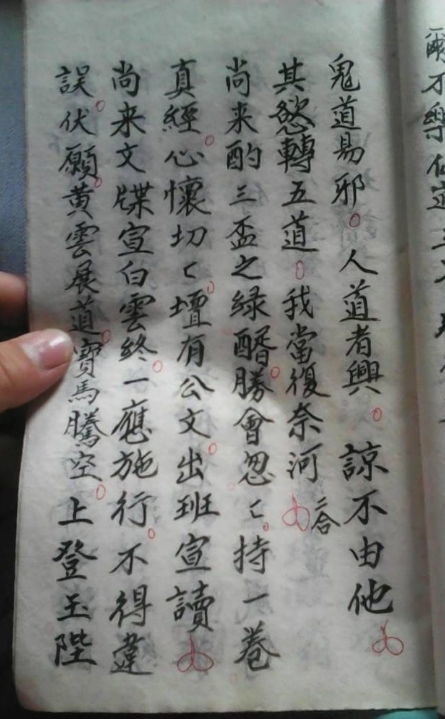 鬼道易邪。人道者興。諒不由他
其慾轉五道。我當復奈河 合
尚来酌三盃之緑醑。勝會忽〻。持一卷
真經。心懷切〻。壇有公文。出班宣讀
尚来文牒宣白雲終。一應施行。不得違
誤。伏願。黄雲展道。寳馬騰空。上登玉陛